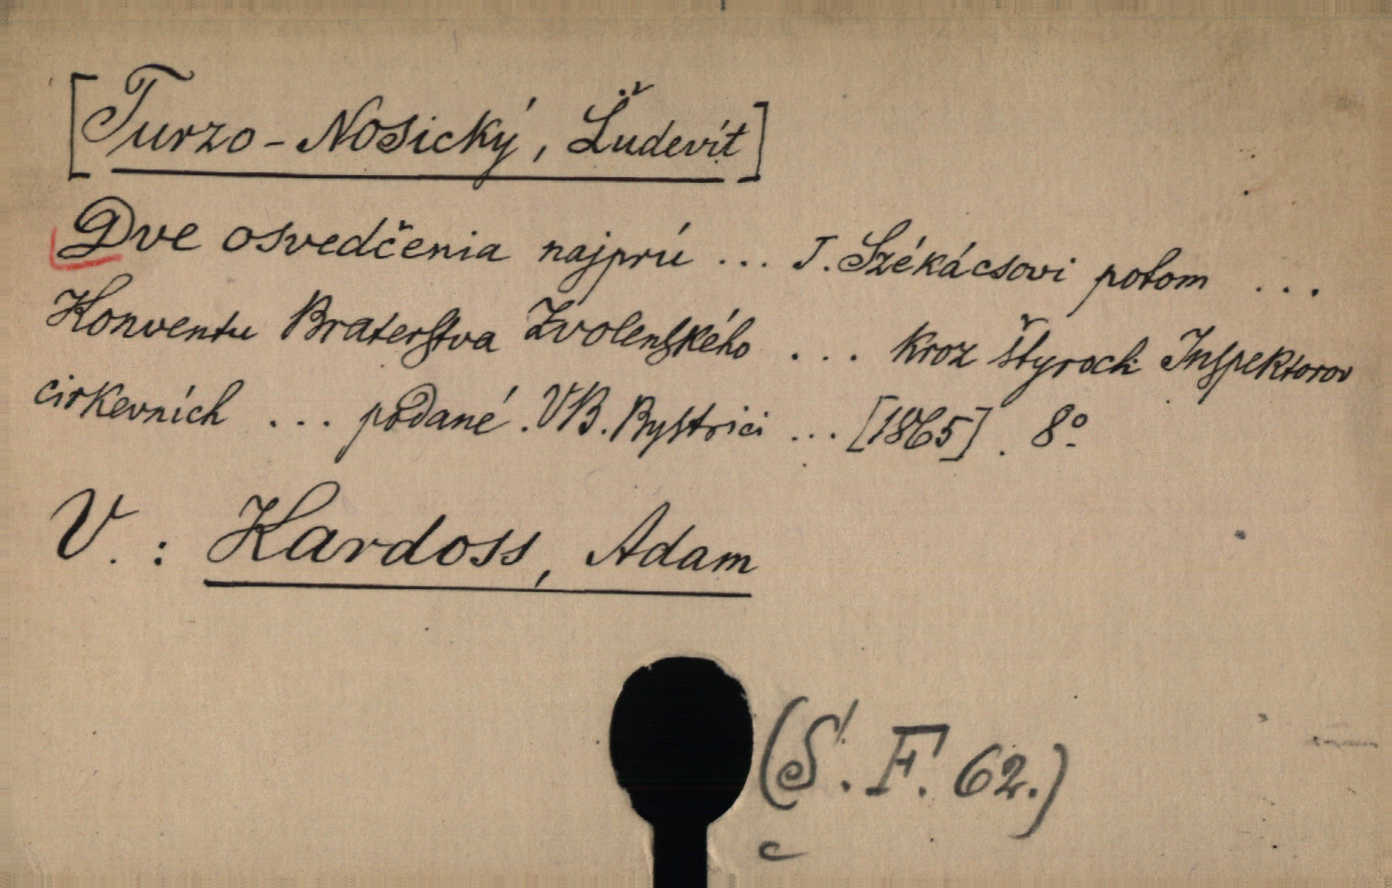 [Turzo-Nosický, Ľudevít]
Dve osvedčenia najprú ... J. Székácsovi potom ...
Konventu Braterstva Zvolenského ... kroz štyroch Inspektorov
cirkevních ... podané. V B. Bystrici ... [1865]. 8°
V.: Kardoss, Adam
(S. F. 62.)
c